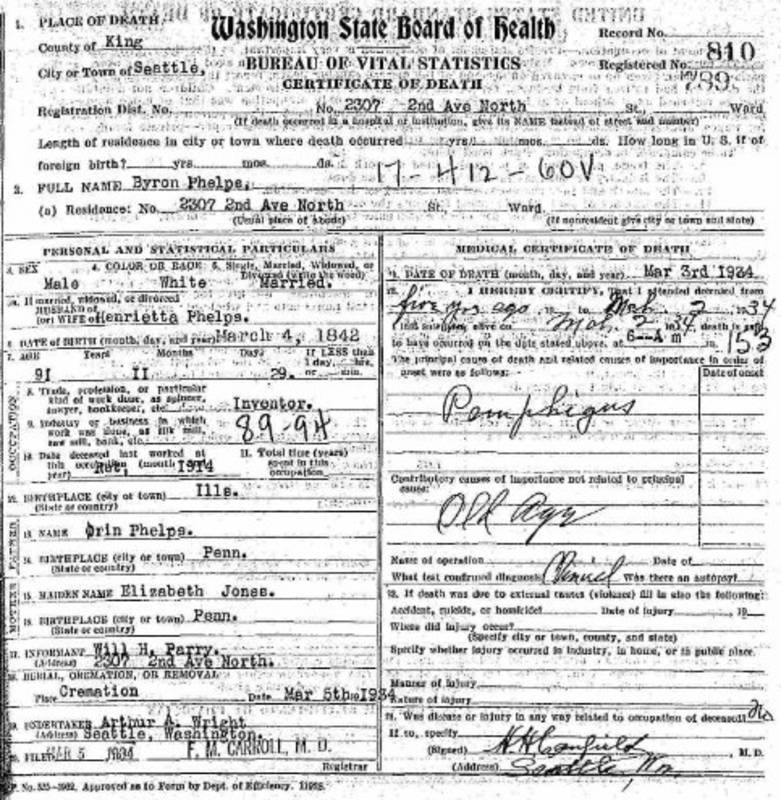 Washington State Board of Health
BUREAU OF VITAL STATISTICS
CERTIFICATE OF DEATH
Record No. 810
Registered No. 789
1. PLACE OF DEATH
County of King
City or Town of Seattle,
Registration Dist. No. No. 2307 2nd Ave North St., Ward
(If death occurred in a hospital or institution, give its NAME instead of street and number)
Length of residence in city or town where death occurred yrs. mos. ds. How long in U. S. if of
foreign birth? yrs. mos. ds. 17-412-60V
2. FULL NAME Byron Phelps,
(a) Residence: No. 2307 2nd Ave North St. Ward.
(Usual place of abode) (If nonresident give city or town and state)
PERSONAL AND STATISTICAL PARTICULARS
3. SEX 4. COLOR OR RACE 5. Single, Married, Widowed, or
Divorced (write the word)
Male White Married.
5a. If married, widowed, or divorced
HUSBAND of
(or) WIFE of Henrietta Phelps.
6 DATE OF BIRTH (month, day, and year) March 4, 1842
7. AGE Years Months Days If LESS than
1 day hrs.
91 11 29. or min.
OCCUPATION
8. Trade, profession, or particular
kind of work done, as spinner,
sawyer, bookkeeper, etc. Inventor.
9. Industry or business in which
work was done, as silk mill,
saw mill, bank, etc. 89-94
10. Date deceased last worked at
this occupation (month
year) 1914
11. Total time (years)
spent in this
occupation
12. BIRTHPLACE (city or town) Ills.
(State or country)
FATHER
13. NAME Orin Phelps.
14. BIRTHPLACE (city or town) Penn.
(State or country)
MOTHER
15. MAIDEN NAME Elizabeth Jones.
16. BIRTHPLACE (city or town) Penn.
(State or country)
17. INFORMANT Will H. Parry.
(Address) 2307 2nd Ave North.
18. BURIAL, CREMATION, OR REMOVAL
Place Cremation Date Mar 5th 1934
19. UNDERTAKER Arthur A. Wright
(Address) Seattle, Washington.
20. FILED MAR 5 1934 F. M. CARROLL, M. D.
Registrar
MEDICAL CERTIFICATE OF DEATH
21. DATE OF DEATH (month, day, and year) Mar 3rd 1934
22. I HEREBY CERTIFY, That I attended deceased from
five yrs ago to Mch. 2 1934
I last saw alive on Mch. 2 1934 death is said
to have occurred on the date stated above, at 6--A m m. 153
The principal cause of death and related causes of importance in order of
onset were as follows: Date of onset
Pemphigus
Contributory causes of importance not related to principal
cause:
Old Age
Name of operation Date of
What test confirmed diagnosis Clinical Was there an autopsy?
23. If death was due to external causes (violence) fill in also the following:
Accident, suicide, or homicide? Date of injury 19
Where did injury occur?
(Specify city or town, county, and state)
Specify whether injury occurred in industry, in home, or in public place.
Manner of injury
Nature of injury
24. Was disease or injury in any way related to occupation of deceased? No
If so, specify
(Signed) H H Canfield M. D.
(Address) Seattle, Wn.
Approved as to Form by Dept. of Efficiency.